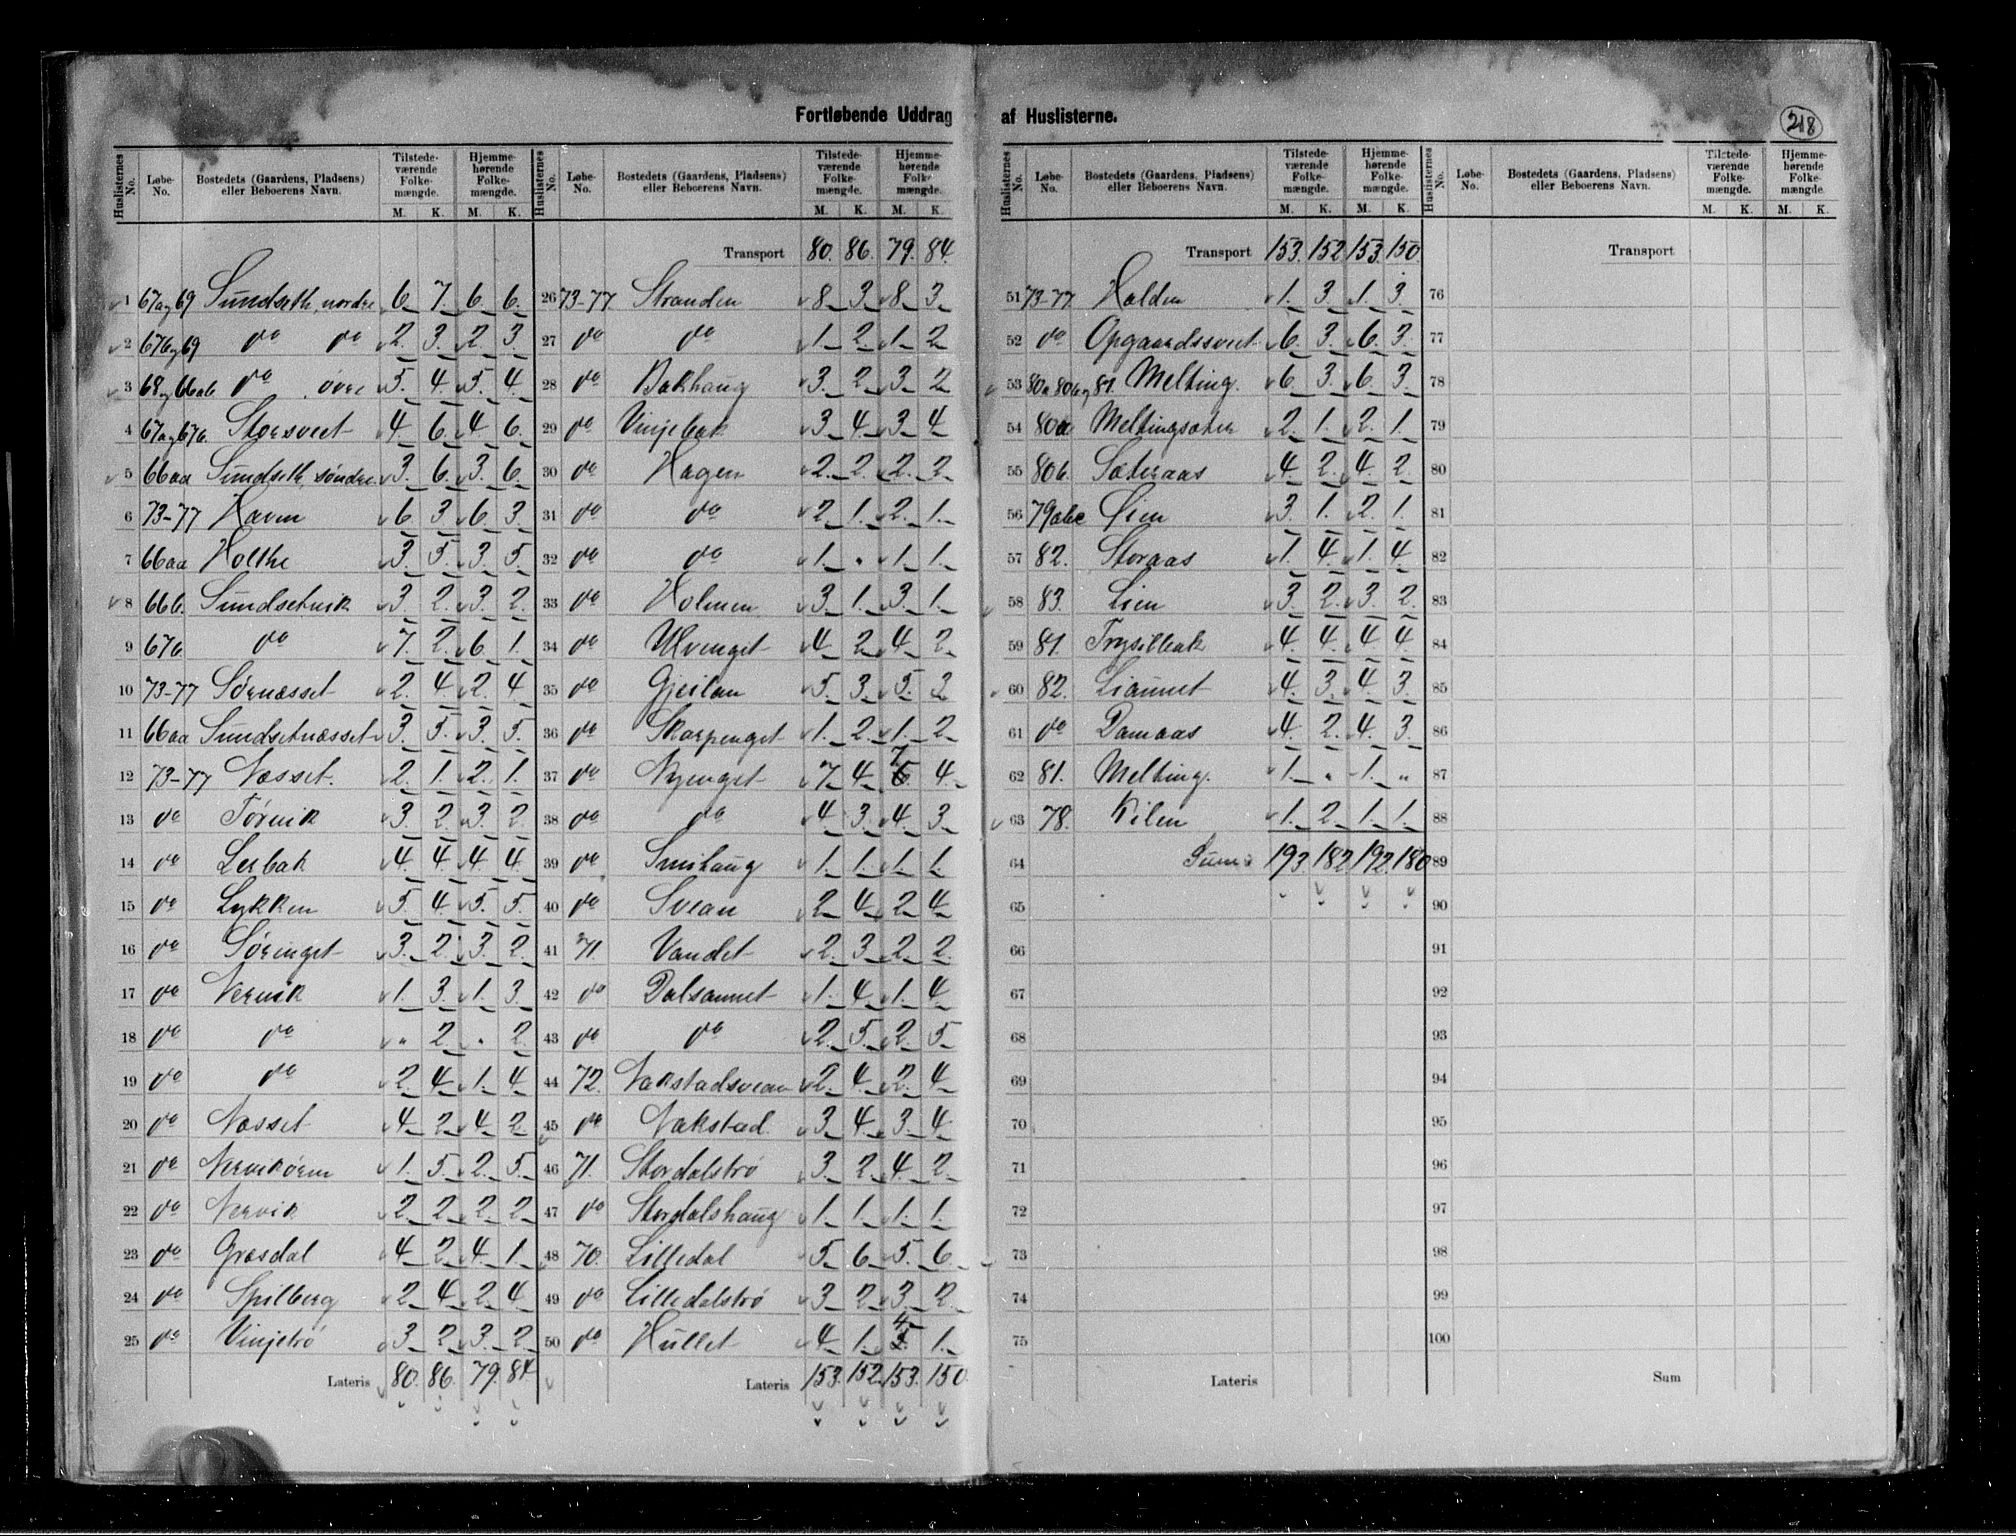 Fortløbende Uddrag af Huslisterne.
218
Huslisternes No. | Løbe-No. | Bostedets (Gaardens, Pladsens) eller Beboerens Navn. | Tilstedeværende Folkemængde. M. K. | Hjemmehørende Folkemængde. M. K.
1 67a og 69 Sundseth, nordre 6 7. 6. 6.
2 67b og 69 do do 2. 3. 2. 3.
3 68 og 66ab do øvre 5. 4 5. 4.
4 67a og 67b. Storsveet 4. 6. 4. 6.
5 66aa Sundseth, søndre 3. 6. 3. 6.
6 73-77 Havn 6. 3 6. 3.
7 66aa Holthe 3. 5. 3. 5.
8 66b. Sundsetvik 3. 2. 3. 2.
9 67b do 7. 2. 6. 1.
10 73-77 Sørnæsset 2. 4. 2. 4
11 66aa Sundsetnæsset 3. 5. 3. 5.
12 73-77 Næsset. 2. 1. 2. 1.
13 do Tørvik 3. 2. 3. 2
14 do Lerbak 4. 4. 4. 4
15 do Lykken 5. 4. 5. 5.
16 do Sørenget 3. 2. 3. 2.
17 do Nervik 1. 3. 1. 3.
18 do do " 2. " 2.
19 do do 2. 4. 1. 4
20 do Næsset 4. 2 4. 2
21 do Nervikøren 1. 5. 2. 5.
22 do Nervik 2. 2 2. 2
23 do Græsdal 4. 2. 4. 1.
24 do Spilberg 2. 4. 2. 4
25 do Vinjetrø 3. 2. 3. 2.
Lateris 80. 86. 79. 84
Huslisternes No. | Løbe-No. | Bostedets (Gaardens, Pladsens) eller Beboerens Navn. | Tilstedeværende Folkemængde. M. K. | Hjemmehørende Folkemængde. M. K.
Transport 80. 86. 79. 84.
26 73-77 Stranden 8. 3. 8. 3.
27 do do 1. 2. 1. 2
28 do Bakhaug 3. 2. 3. 2
29 do Vinjebak 3. 4. 3. 4
30 do Hagen 2. 2. 2. 2
31 do do 2. 1. 2. 1.
32 do do 1. " 1. 1.
33 do Holmen 3. 1. 3. 1.
34 do Ulvenget 4. 2. 4. 2.
35 do Gjeilan 5. 3. 5. 3
36 do Skarpenget 1. 2. 1. 2
37 do Nyenget 7. 4. 7 4.
38 do do 4. 3. 4. 3
39 do Smihaug 1. 1. 1. 1.
40 do Svean 2. 4. 2. 4.
41 71. Vandet 2. 3. 2. 2.
42 do Dalsaunet 1. 4. 1. 4.
43 do do 2. 5. 2. 5
44 72. Nakstadsvean 2. 4. 2. 4
45 do Nakstad 3. 4. 3. 4
46 71. Stordalstrø 3. 2. 4. 2.
47 do Stordalshaug 1. 1. 1. 1.
48 70. Lilledal 5. 6. 5. 6.
49 do Lilledalstrø 3. 2. 3. 2.
50 do Hullet 4. 1. 4 1.
Lateris 153. 152. 153. 150.
Huslisternes No. | Løbe-No. | Bostedets (Gaardens, Pladsens) eller Beboerens Navn. | Tilstedeværende Folkemængde. M. K. | Hjemmehørende Folkemængde. M. K.
Transport 153. 152 153. 150.
51 73-77 Halden 1. 3. 1. 3.
52 do Opgaardssveet 6. 3. 6. 3.
53 80a 80b og 81. Melting. 6. 3. 6. 3.
54 80a Meltingsæter 2. 1. 2. 1.
55 80b. Sæteraas 4. 2. 4. 2.
56 79abc Lien 3. 1. 2. 1.
57 82. Storaas 1. 4. 1. 4
58 83. Lien 3. 2. 3. 2.
59 81. Trysilbak 4. 4. 4. 4
60 82. Liaunet 4. 3. 4. 3.
61 do Damaas 4. 2. 4. 3.
62 81. Melting. 1. " 1. "
63 78. Kilen 1. 2. 1. 1.
64 Sum 193. 182. 192. 180.
65
66
67
68
69
70
71
72
73
74
75
Lateris
Huslisternes No. | Løbe-No. | Bostedets (Gaardens, Pladsens) eller Beboerens Navn. | Tilstedeværende Folkemængde. M. K. | Hjemmehørende Folkemængde. M. K.
Transport
76
77
78
79
80
81
82
83
84
85
86
87
88
89
90
91
92
93
94
95
96
97
98
99
100
Sum